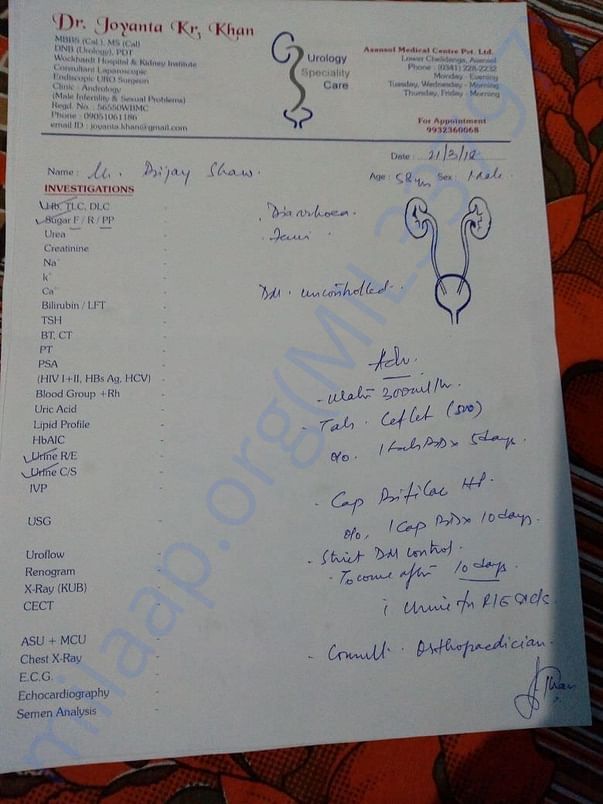 Dr. Joyanta Kr. Khan
MBBS (Cal.), MS (Cal)
DNB (Urology), PDT
Wockhardt Hospital & Kidney Institute
Consultant Laparoscopic
Endiscopic URO Surgeon
Clinic - Andrology
(Male Infertility & Sexual Problems)
Regd. No. : 56550WBMC
Phone : 09051061186
email ID : joyanta.khan@gmail.com
Urology
Speciality
Care
Asansol Medical Centre Pvt. Ltd.
Lower Chelidanga, Asansol
Phone : (0341) 228-2232
Monday - Evening
Tuesday, Wednesday - Morning
Thursday, Friday - Morning
For Appointment
9932360068
Date : 21/3/18
Name : Mr. Bijay Shaw. Age : 58 yrs Sex : Male
INVESTIGATIONS
Hb, TLC, DLC -
Sugar F / R / PP - . Diarrhoea
Urea -
Creatinine -
Na+ -
k+ -
Ca++ - DM - uncontrolled.
Bilirubin / LFT -
TSH -
BT, CT -
PT -
PSA - Adv.
(HIV I+II, HBs Ag, HCV) -
Blood Group +Rh - - Water 300ml/hr.
Uric Acid - - Tab. Ceflet (500)
Lipid Profile -
HbAIC - 1 tab BD x 5 days.
Urine R/E -
Urine C/S -
IVP - - Cap Bifilac HP.
USG - 1 Cap BD x 10 days.
Uroflow - - Strict DM control.
Renogram - - To come after 10 days.
X-Ray (KUB) -
CECT - Urine for R/E &c/s.
ASU + MCU -
Chest X-Ray - - Consult - Orthopaedician.
E.C.G. -
Echocardiography -
Semen Analysis -
JKhan
milaap.org(MIL33197